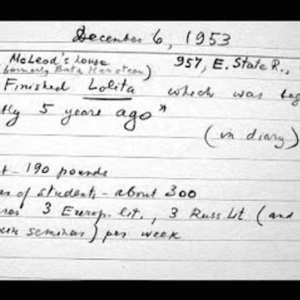 December 6, 1953
McLeod's house 957, E. State R.,
(formerly
Finished Lolita which was beg
tly 5 years ago*
(in diary)
t - 190 pounds
of students - about 300
3 Europ. lit., 3 Russ Lit (and
seminar) per week